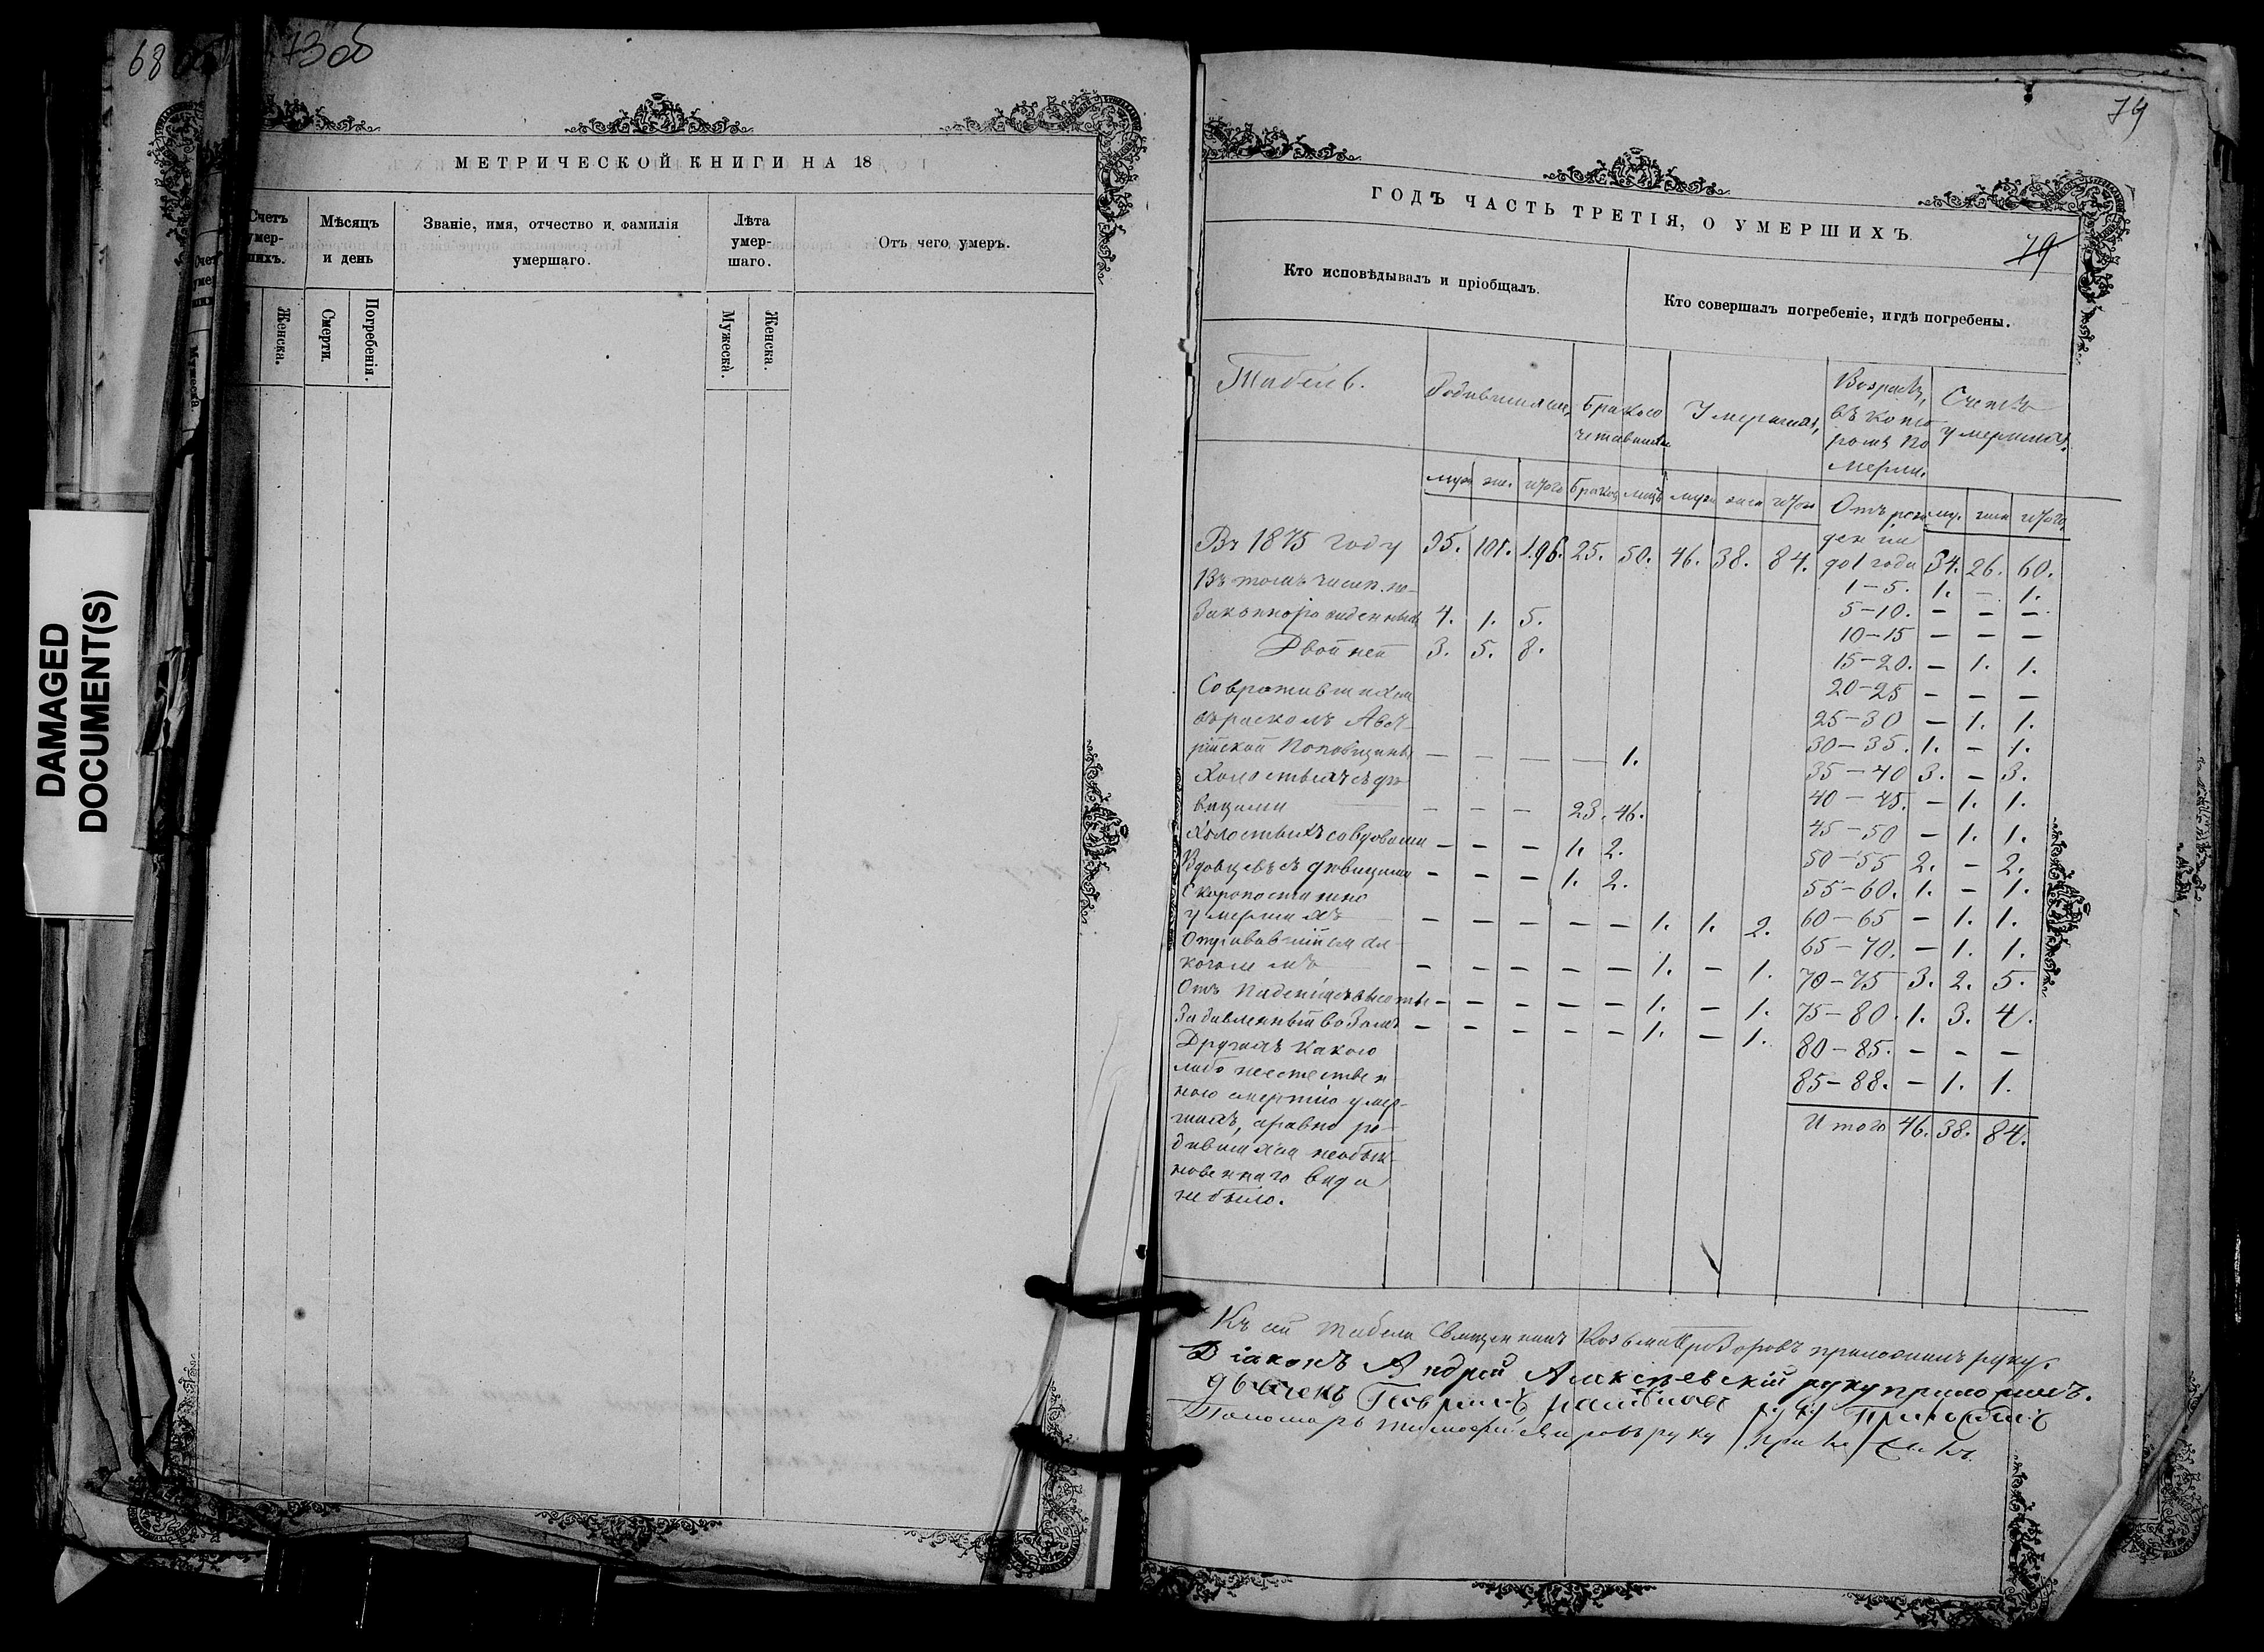 68
73 об
МЕТРИЧЕСКОЙ КНИГИ НА 18
Счетъ умер- шихъ.
Мѣсяцъ и день
Званіе, имя, отчество и фамилія умершаго.
Лѣта умер- шаго.
Отъ чего умеръ.
Женска.
Смерти.
Погребенія.
Мужеска.
Женска.
DAMAGED
DOCUMENT(S)
74
ГОДЪ ЧАСТЬ ТРЕТІЯ, О УМЕРШИХЪ
Кто исповѣдывалъ и пріобщалъ.
Кто совершалъ погребеніе, и гдѣ погребены.
Табель.
Умершихъ,
Возрастъ, въ кото ромъ по мерли.
Счетъ умершихъ.
муж. жен. итого
Браков лицъ
муж жен итого
Отъ рож ден ия до 1 года 34. 26. 60.
Въ 1875 году 95. 101. 196. 25. 50. 46. 38. 84.
Въ томъ числѣ не-
законнорожденныхъ 4. 1. 5.
Двойней 3. 5. 8.
1-5. 1. - 1.
5-10. - - -
10-15 - - -
15-20. - 1. 1.
20-25 - - -
25-30 - 1. 1.
30-35. 1. - 1.
35-40 3. - 3.
40-45. - 1. 1.
45-50 - 1. 1.
50-55 2. - 2.
55-60. 1. - 1.
60-65 - 1. 1.
65-70. - 1. 1.
70-75 3. 2. 5.
75-80. 1. 3. 4.
80-85. - - -
85-88. - 1. 1.
Итого 46. 38. 84.
Совратившихся
въ расколъ Авст-
рійской Поповщины - - - - 1.
Холостыхъ съ дѣ
вицами - - - 23. 46.
Холостыхъ со вдовами - - - 1. 2.
Вдовцевъ съ дѣвицами - - - 1. 2.
Скоропостижно
умершихъ - - - - - 1. 1. 2.
ал-
коголемъ - - - - - 1. - 1.
Отъ паденія съ высоты - - - - - 1. - 1.
Задавленный возомъ - - - - - 1. - 1.
Другихъ какою
либо неестествен
ною смертію умер-
шихъ, а равно ро-
дившихся необык-
новеннаго вида
не было.
Къ сей табели Священникъ Козьма приложилъ руку.
Діаконъ Андрей Алексѣевскій руку приложилъ.
Пономарь Тимофей руку